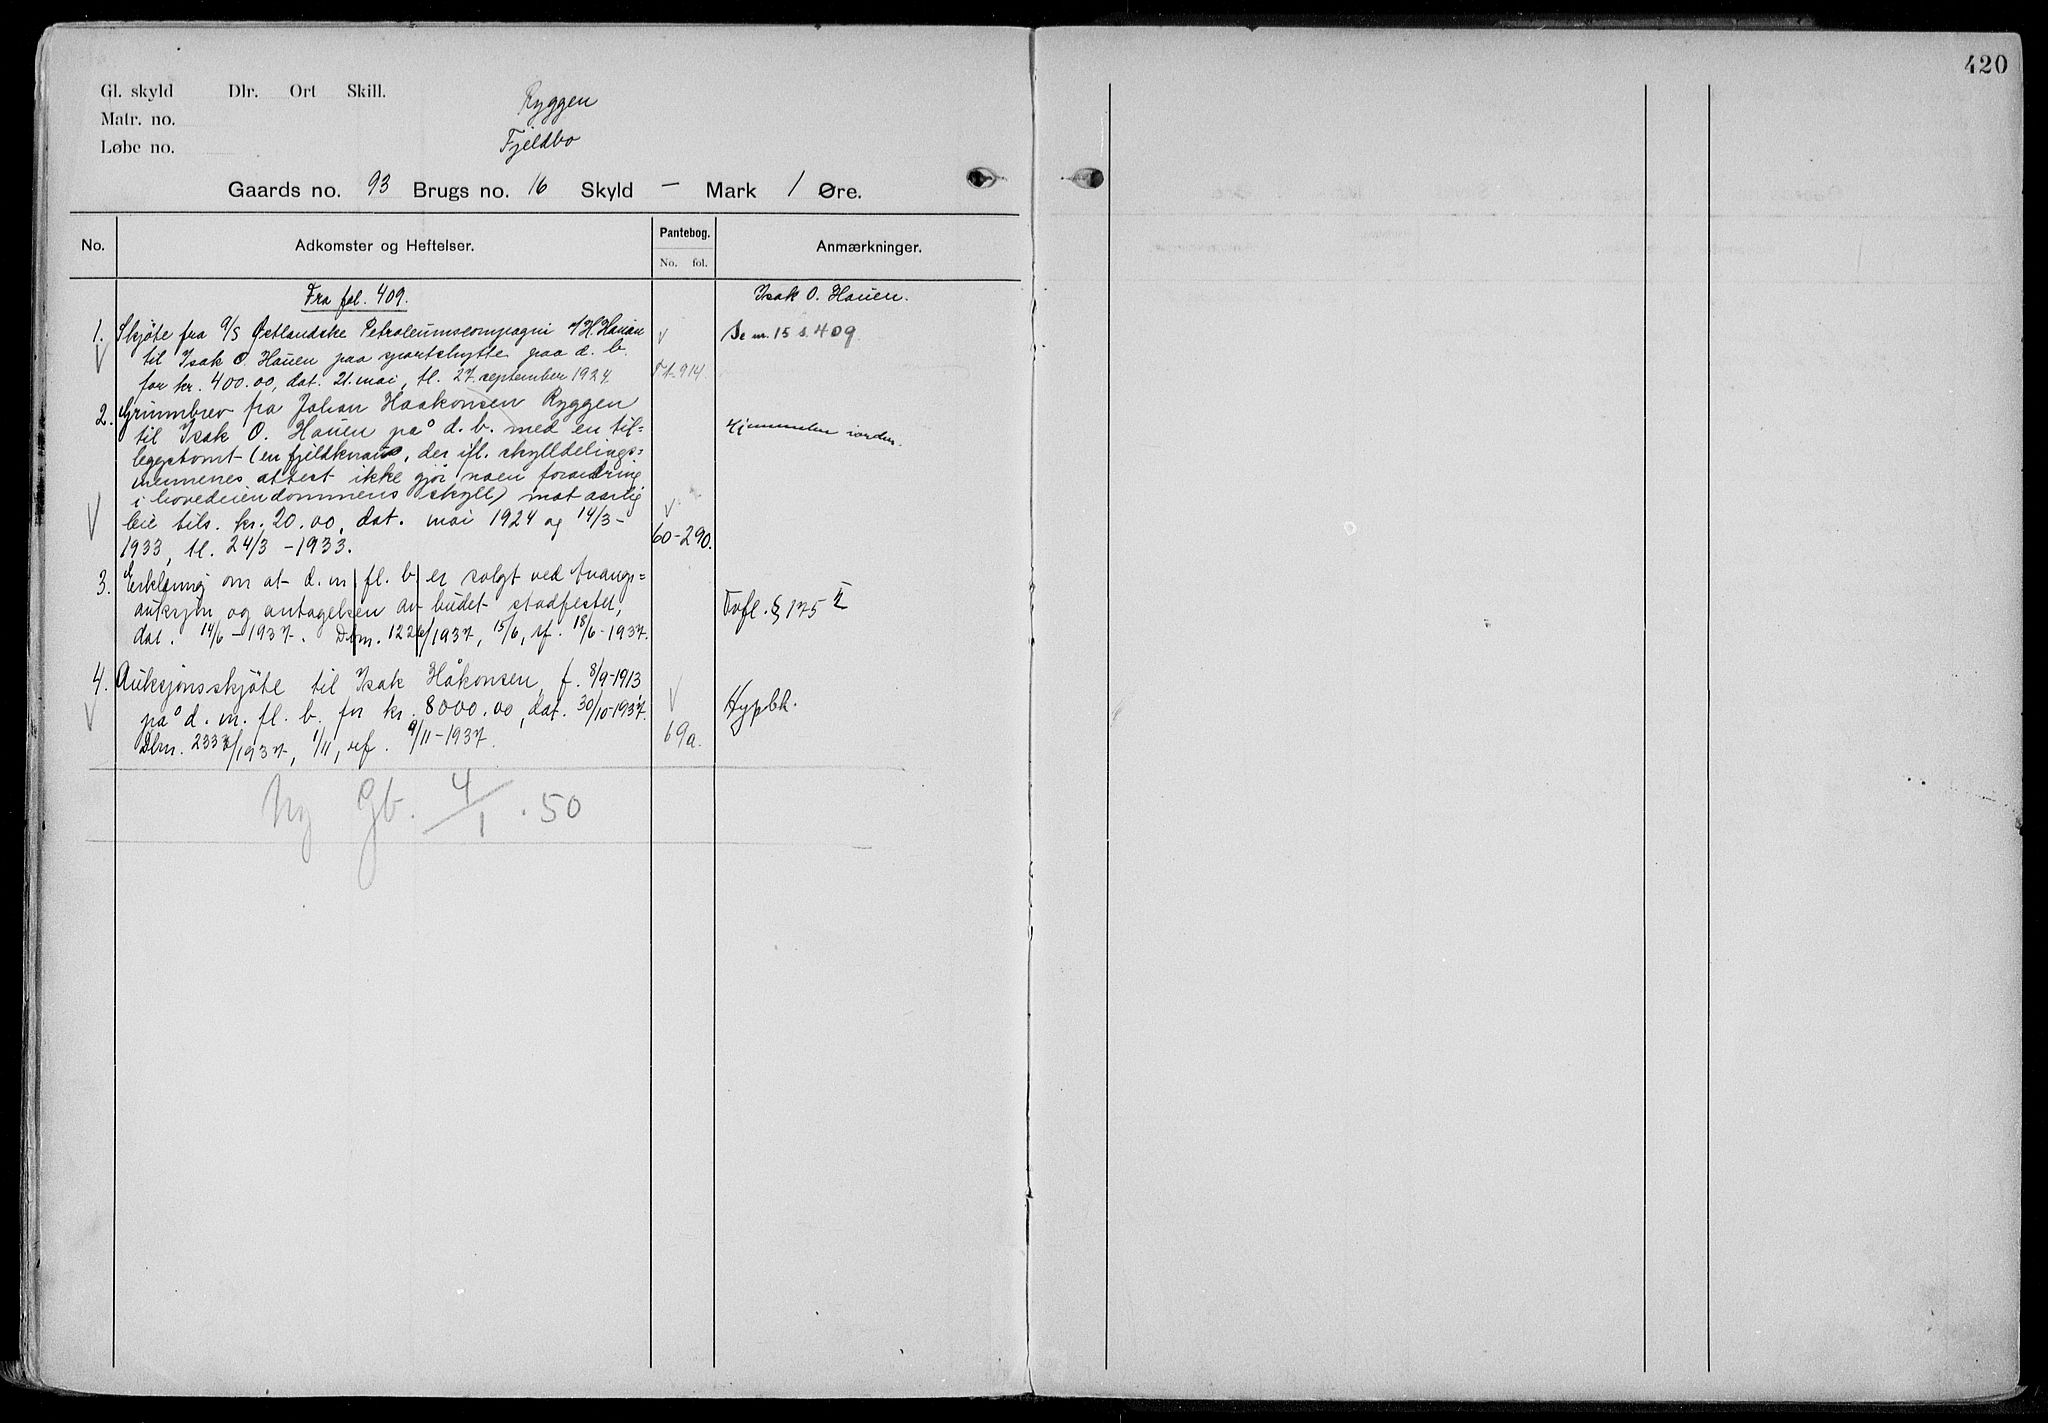 420
Gl. skyld Dlr. Ort Skill.
Matr. no.
Løbe no.
Ryggen
Fjeldbo
Gaards no. 93 Brugs no. 16 Skyld — Mark 1 Øre.
No. Adkomster og Heftelser. Pantebog. No. fol. Anmærkninger.
Fra fol. 409. Isak O. Hauen.
1. Skjøte fra A/S Østlandske Petroleumscompagni v/ H. Hauan Se nr. 15 s. 409
til Isak O. Hauen paa sportshytte paa d. b.
for kr. 400.00, dat. 21. mai, tl. 27. september 1924. 914.
2. Grunnbrev fra Johan Haakonsen Ryggen
til Isak O. Hauen på d. b. med en til= Hjemmelen i orden.
legstomt (en fjeldknaus, der ifl. skylldelings=
mennenes attest ikke gjør noen forandring
i hovedeiendommens skyll) mot aarlig
leie tils. kr. 20.00, dat. mai 1924 og 14/3-
1933, tl. 24/3-1933. 60-290.
3. Erklæring om at d. m. fl. b. er solgt ved tvangs=
auksjon og antagelsen av budet stadfestet, Tvfl. § 175 II
dat. 14/6-1937. Dbnr. 1226/1937, 15/6, rf. 18/6-1937.
4. Auksjonsskjøte til Isak Håkonsen, f. 8/9-1913
på d. m. fl. b. for kr. 8000.00, dat. 30/10-1937. Hypbk.
Dbnr. 2333/1937, 1/11, ref. 9/11-1937. 69a.
Ny Gb. 4/1.50